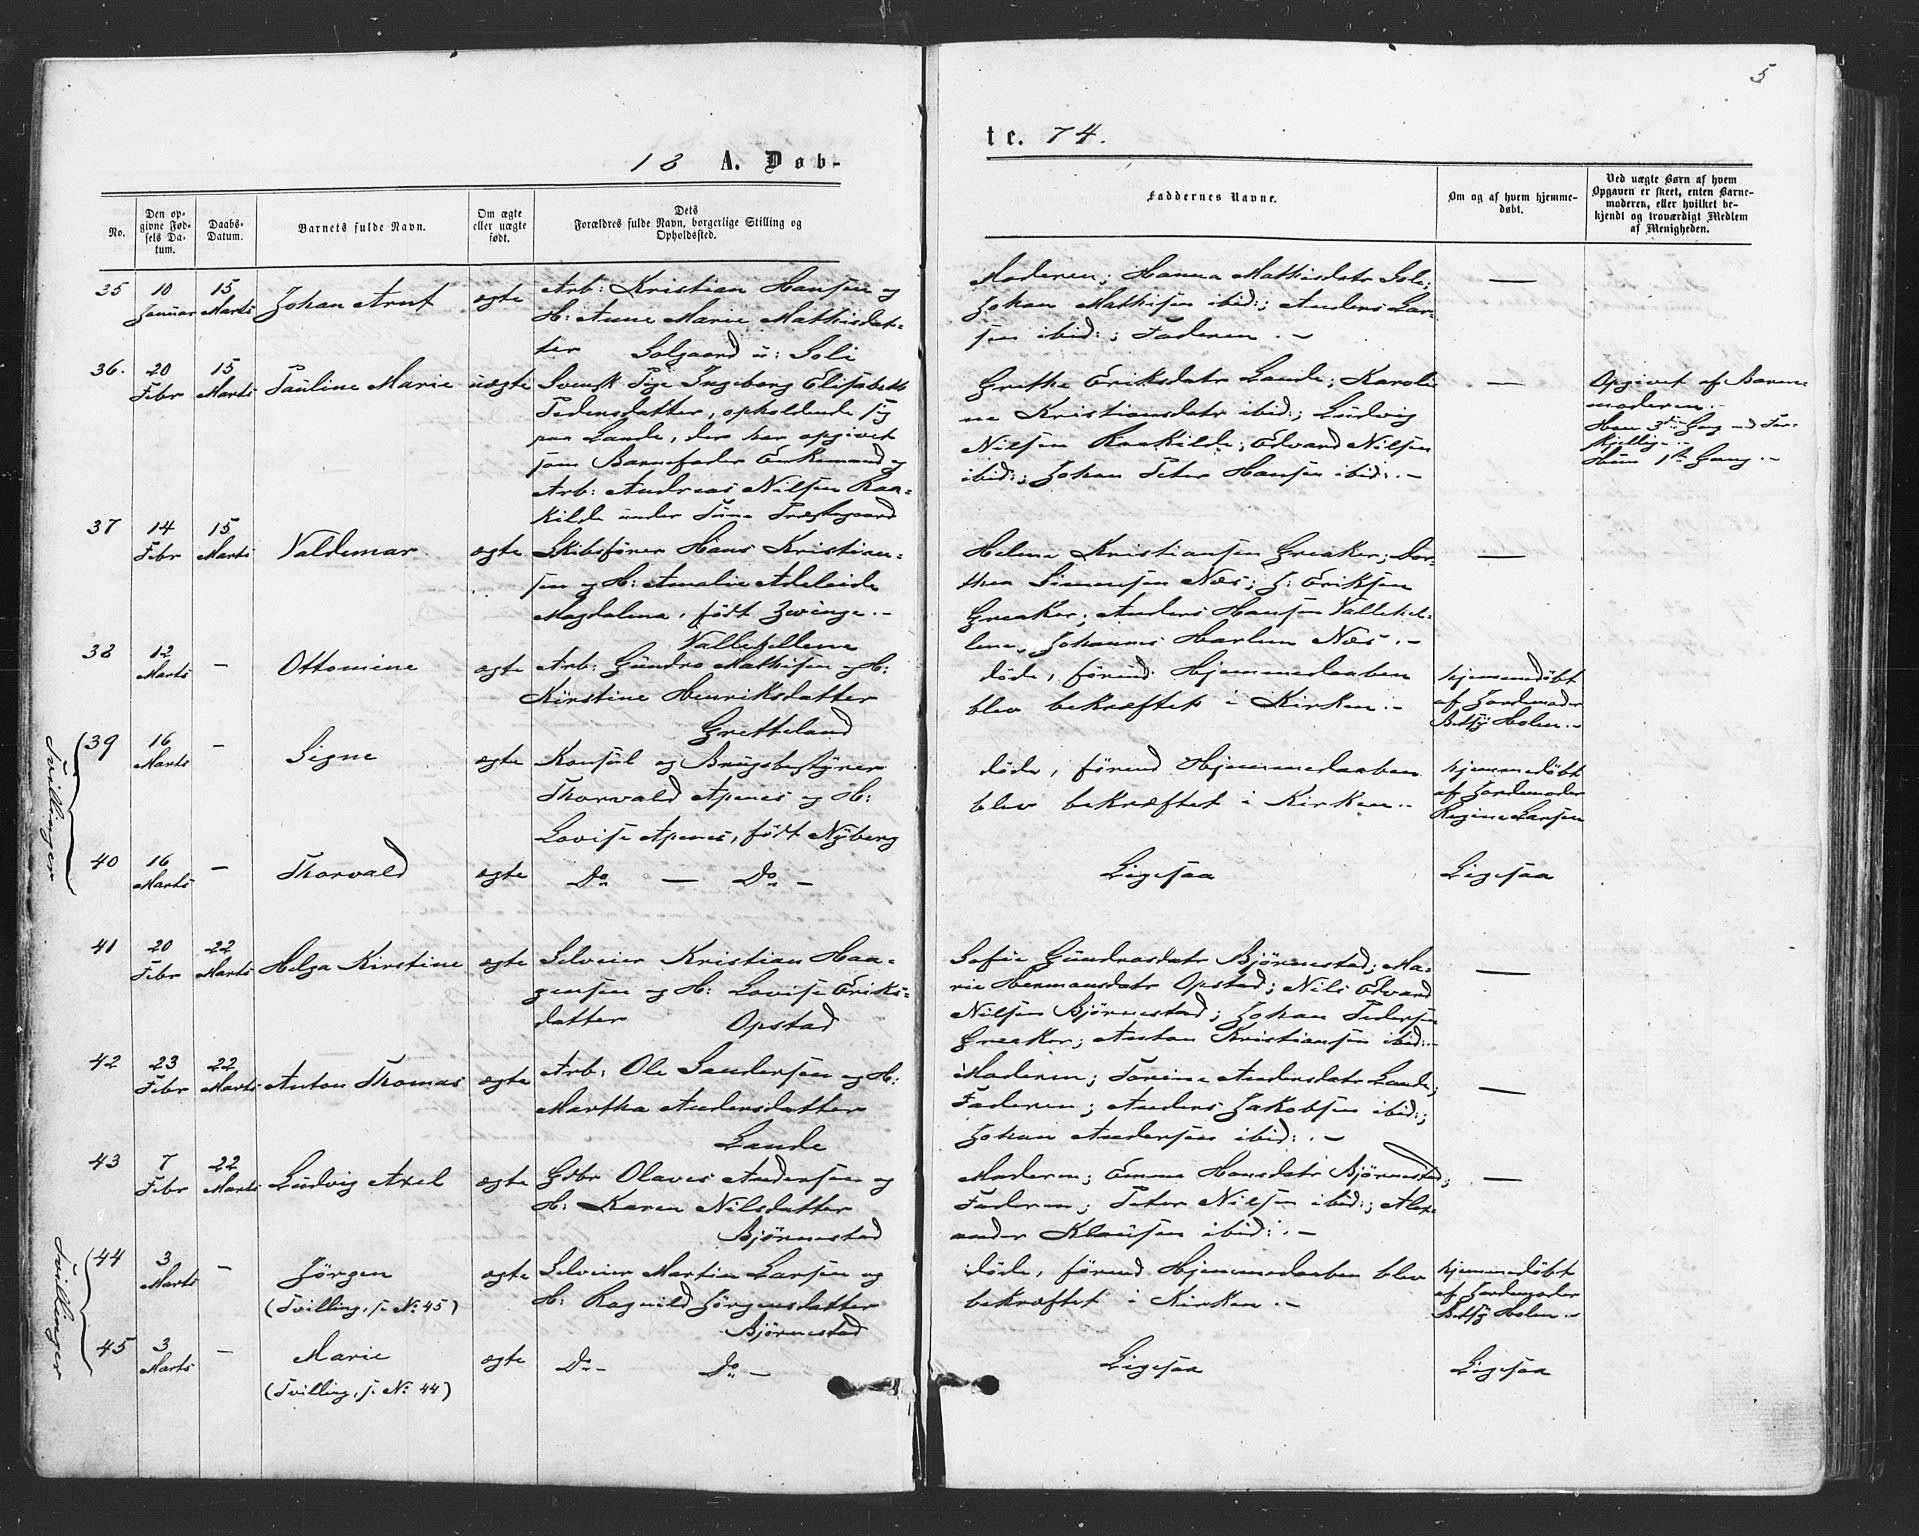 5
18 A. Døb-
te. 74.
No.
Den op-
givne Fød-
sels Da-
tum.
Daabs-
Datum.
Barnets fulde Navn.
Om ægte
eller uægte
født.
Dets
Forældres fulde Navn, borgerlige Stilling og
Opholdsted.
Faddernes Navne.
Om og af hvem hjemme-
døbt.
Ved uægte Børn af hvem
Opgaven er skeet, enten Barne-
moderen, eller hvilket be-
kjendt og troværdigt Medlem
af Menigheden.
35
10
Januar
15
Marts
Johan Arnt
ægte
Arb: Kristian Hansen og
H: Anne Marie Mathisdat-
ter Solgaard u: Soli
Moderen; Hanna Mathisdatr Soli;
Johan Mathisen ibid:; Anders Lar-
sen ibid:; Faderen. –
—
36.
20
Febr
15
Marts
Pauline Marie
uægte
Svensk Pige Ingeborg Elisabeth
Pedersdatter, opholdende sig
paa Lande, der har opgivet
som Barnefader Enkemand og
Arb: Andreas Nilsen Raa-
kilde under Tune Præstegaard
Grethe Eriksdatr Lande; Karoli
ne Kristiansdatr ibid:; Ludvig
Nilsen Raakilde; Edvard Nilsen
ibid:; Johan Peter Hansen ibid:. –
—
Opgivet af Barne-
moderen. –
Han 3die Gang med For-
skjellige. –
Hun 1ste Gang. –
37
14
Febr
15
Marts
Valdemar
ægte
Skibsfører Hans Kristian-
sen og H: Amalie Adelaide
Magdalena, født Zwinge. –
Vallekillene
Helene Kristiansen Greaker; Dor-
thea Simensen Næs; J: Eriksen
Greaker; Anders Hansen Vallekil-
lene, Johannes Harlem Næs. –
—
38
12
Marts
–
Ottomine
ægte
Arb: Gundro Mathisen og H:
Kirstine Henriksdatter
Gretteland
døde, førend Hjemmedaaben
blev bekræftet i Kirken. –
hjemmedøbt
af Jordemoder
Betsy Holen. –
Tvillinger
39
16
Marts
–
Signe
ægte
Konsul og Brugsbestyrer
Thorvald Apenes og H:
Lovise Apenes, født Nyberg
døde, førend Hjemmedaaben
blev bekræftet i Kirken. –
hjemmedøbt
af Jordemoder
Regine Larsen
40
16
Marts
–
Thorvald
ægte
Do — Do –
Ligesaa
Ligesaa
41
20
Febr
22
Marts
Helga Kirstine
ægte
Selveier Kristian Haa-
gensen og H: Lovise Eriks-
datter Opstad
Sofie Gundrosdatr Bjørnestad; Ma-
rie Hermansdatr Opstad; Nils Edvard
Nilsen Bjørnestad; Johan Pedersen
Greaker; Anton Kristiansen ibid:-
—
42
23
Febr
22
Marts
Anton Thomas
ægte
Arb: Ole Sandersen og H:
Martha Andersdatter
Lande
Moderen; Torine Andersdatr Lande;
Faderen; Anders Jakobsen ibid:;
Johan Andersen ibid:. –
—
43
7
Febr
22
Marts
Ludvig Axel
ægte
Gdbr Olaves Andersen og
H: Karen Nilsdatter
Bjørnestad
Moderen; Emma Hansdatr Bjørnestad;
Faderen; Peter Nilsen ibid:; Alex-
ander Klausen ibid:. –
—
Tvillinger
44
3
Marts
–
Jørgen
(Tvilling, s. No. 45)
ægte
Selveier Martin Larsen og
H: Ragnild Jørgensdatter
Bjørnestad
døde, førend Hjemmedaaben blev
bekræftet i Kirken. –
hjemmedøbt
af Jordemoder
Betsy Holen. –
45
3
Marts
–
Marie
(Tvilling, s. No. 44)
ægte
Do – Do –
Ligesaa
Ligesaa